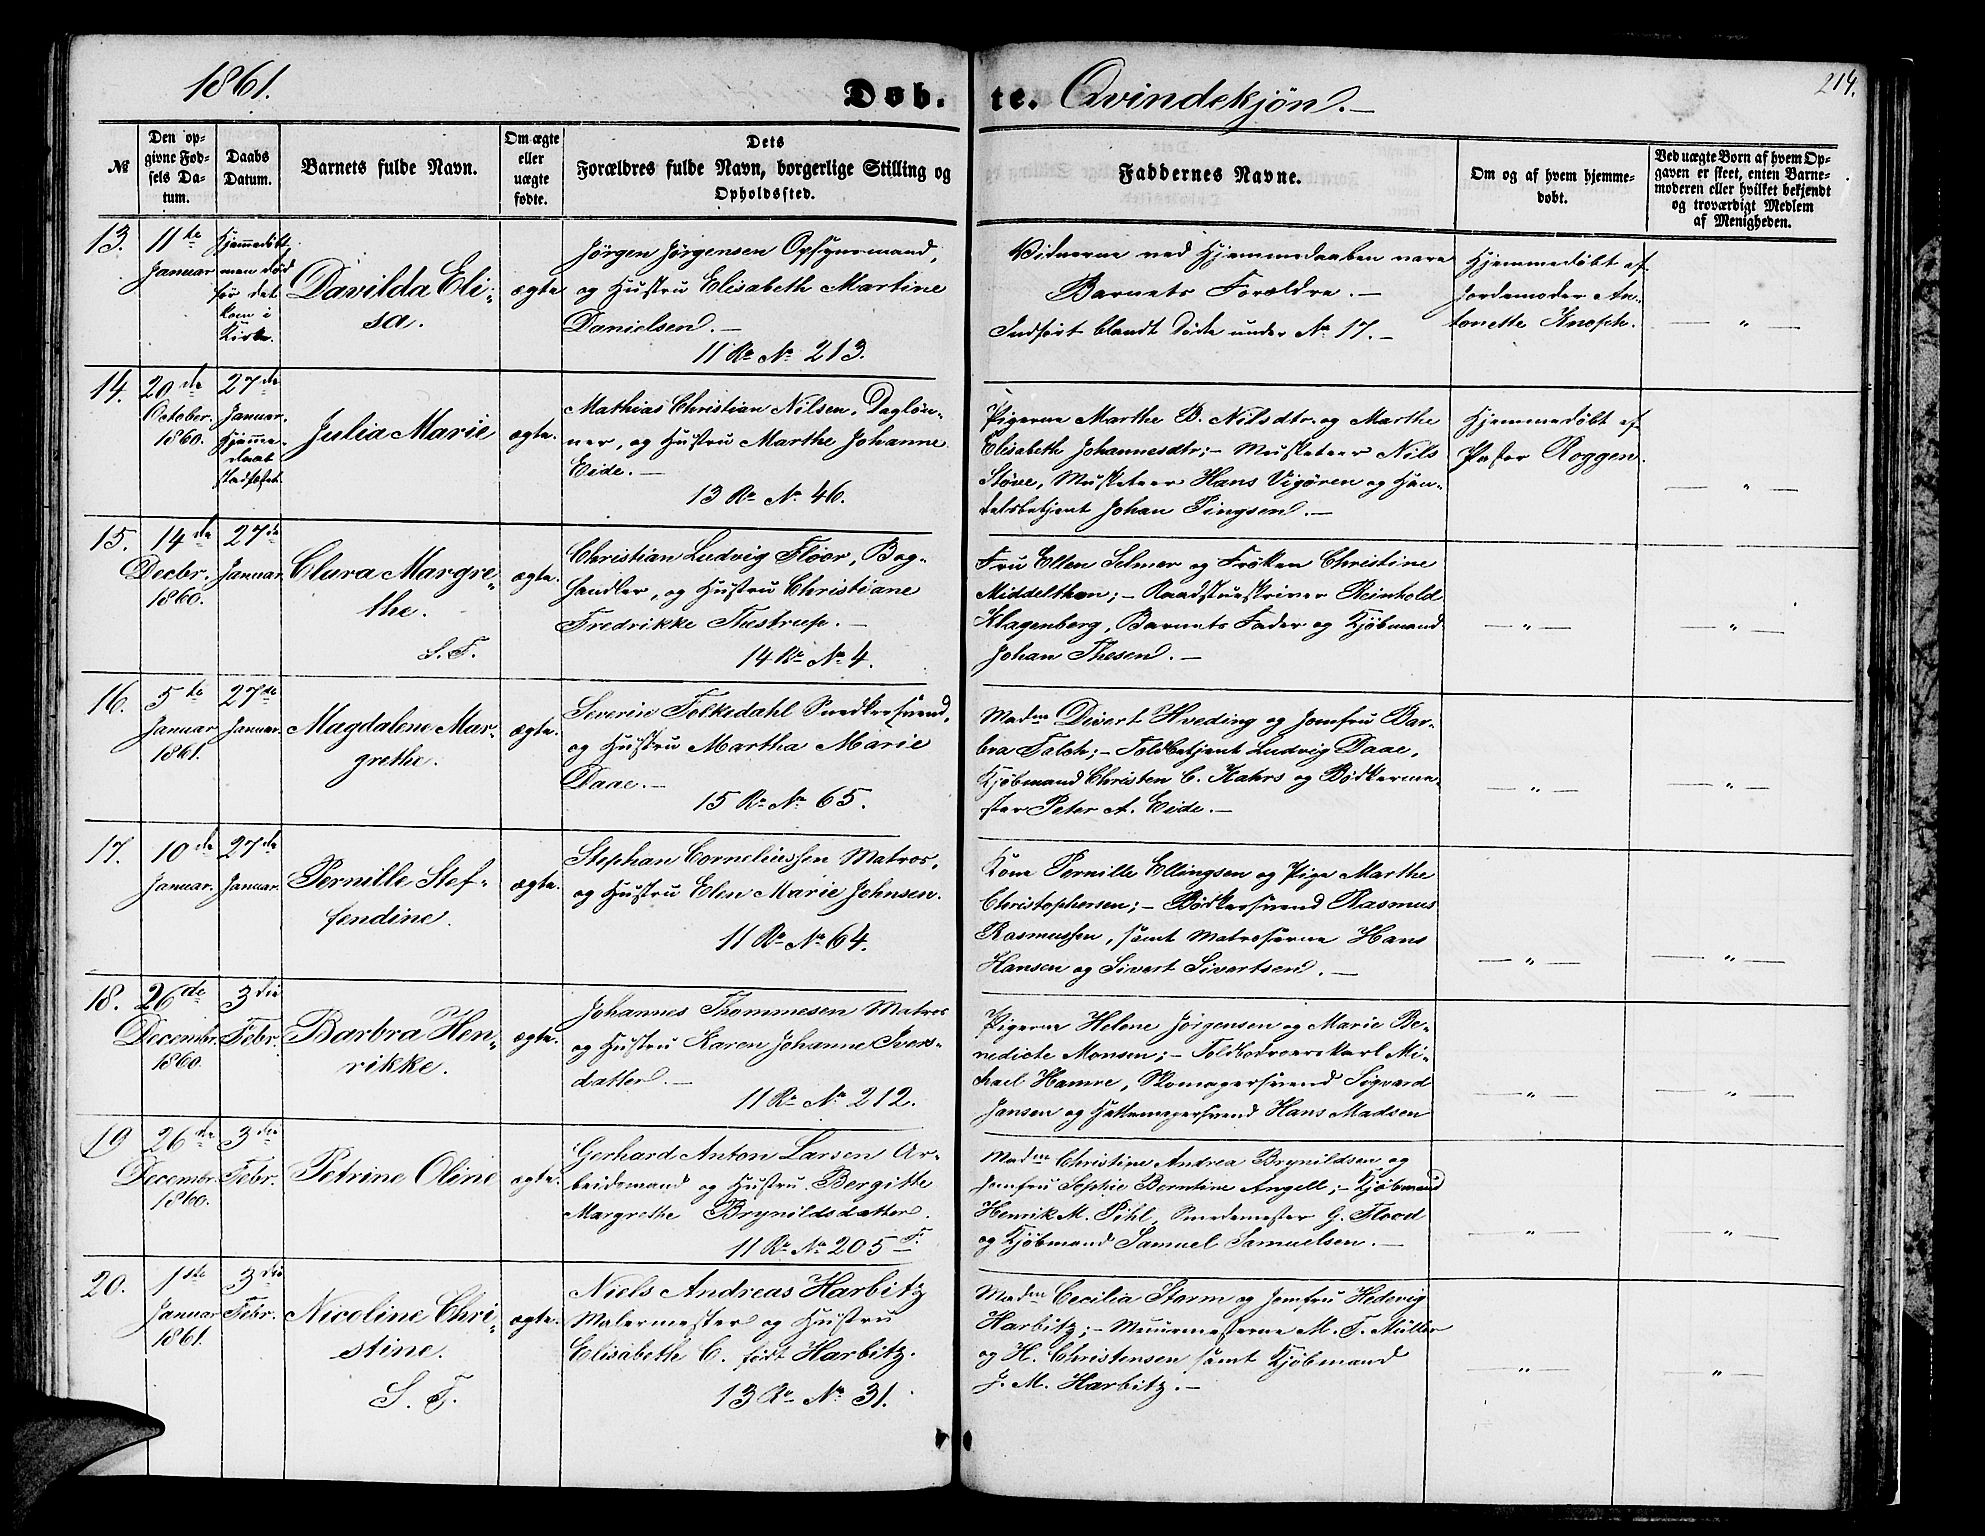 1861.
Døb. te. Qvindekjøn.
214.
№
Den opgivne Fødsels Datum.
Daabs Datum.
Barnets fulde Navn.
Om ægte eller uægte fødte.
Dets Forældres fulde Navn, borgerlige Stilling og Opholdssted.
Faddernes Navne.
Om og af hvem hjemmedøbt.
Ved uægte Børn af hvem Opgaven er skeet, enten Barnemoderen eller hvilket bekjendt og troværdigt Medlem af Menigheden.
13.
11te
Januar
Hjemmedøbt
men død
før det
kom i
Kirke.
Davilda Eli-
sa.
ægte
Jörgen Jörgensen Opsynsmand,
og Hustru Elisabeth Martine
Danielsen. —
11 Re № 213.
Vidnerne ved Hjemmedaaben vare
Barnets Forældre. —
Indført blandt døde under № 17. —
Hjemmedøbt af
Jordemoder An-
tonette Knoph.
— " —
14.
20de
October.
1860.
27de
Januar.
Hjemme-
daab
stadfæstet.
Julia Marie
ægte.
Mathias Christian Nilsen, Dagløn-
ner, og Hustru Marthe Johanne
Eide. —
13 Re № 46.
Pigerne Marthe B. Nilsdtr. og Marthe
Elisabeth Johannesdtr; — Musketeer Nils
Støve, Musketeer Hans Vigören og Han-
delsbetjent Johan Pingsen. —
Hjemmedøbt af
Pastor Roggen.
— " —
15.
14de
Decbr.
1860.
27de
Januar.
Clara Margre-
the.
S.F.
ægte.
Christian Ludvig Flöor, Bog-
handler, og Hustru Christiane
Fredrikke Thestrup. —
14 Re № 4.
Fru Ellen Selmer og Fröken Christine
Middelthon; — Raadstueskriver Reinhold
Klagenberg, Barnets Fader og Kjøbmand
Johan Thesen. —
— " —
— " —
16.
5te
Januar
1861.
27de
Januar.
Magdalene Mar-
grethe.
ægte.
Severin Folkedahl Snedkersvend,
og Hustru Martha Marie
Daae. —
15 Re № 65.
Madm Divert Hveding og Jomfru Bar-
bra Falch; — Toldbetjent Ludvig Daae,
Kjøbmand Christen C. Kahrs og Bødkerme-
ster Peter A. Eide. —
— " —
— " —
17.
10de
Januar.
27de
Januar.
Pernille Stef-
fendine.
ægte.
Stephan Corneliussen Matros,
og Hustru Elen Marie Johnsen.
11 Re № 64.
Kone Pernille Ellingsen og Pige Marthe
Christophersen; — Bødkersvend Rasmus
Rasmussen, samt Matroserne Hans
Hansen og Sivert Sivertsen. —
— " —
— " —
18.
26de
Decembr.
1860.
3die
Febr.
Barbra Hen-
rikke.
ægte.
Johannes Thommesen Matros
og Hustru Karen Johanne Ivers-
datter. —
11 Re № 212.
Pigerne Helene Jörgensen og Marie Be-
nedicte Monsen; — Toldbodroerskarl Mi-
chael Hamre, Skomagersvend Sigvard
Jansen og Hattemagersvend Hans Madsen
— " —
— " —
19
26de
Decembr.
1860.
3die
Febr.
Petrine Oline
ægte.
Gerhard Anton Larsen Ar-
beidsmand og Hustru Bergitte
Margrethe Brynildsdatter.
11 Re № 205 F.
Madm Christine Andrea Brynildsen og
Jomfru Sophie Berntine Angell; — Kjøbmand
Henrik M. Pihl, Smedemester G. Flood
og Kjøbmand Samuel Samuelsen. —
— " —
— " —
20.
1ste
Januar
1861.
3die
Febr.
Nicoline Chri-
stine.
S. F.
ægte.
Niels Andreas Harbitz
Malermester og Hustru
Elisabeth C. født Harbitz.
13 Re № 31.
Madm Cecilia Storm og Jomfru Hedevig
Harbitz; — Muurmesterne M. F. Müller
og H. Christensen samt Kjøbmand
J. M. Harbitz. —
— " —
— " —